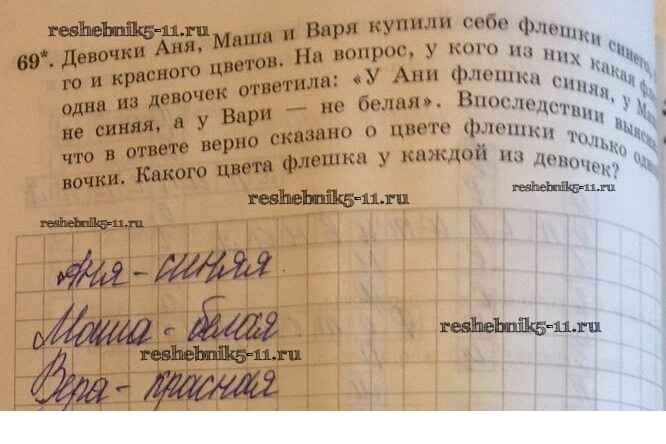 reshebnik5-11.ru
69*. Девочки Аня, Маша и Варя купили себе флешки синего,
го и красного цветов. На вопрос, у кого из них какая
одна из девочек ответила: «У Ани флешка синяя, у
не синяя, а у Вари — не белая». Впоследствии
что в ответе верно сказано о цвете флешки только
вочки. Какого цвета флешка у каждой из девочек?
reshebnik5-11.ru
reshebnik5-11.ru
reshebnik5-11.ru
Аня - синяя
Маша - белая
reshebnik5-11.ru
reshebnik5-11.ru
Вера - красная